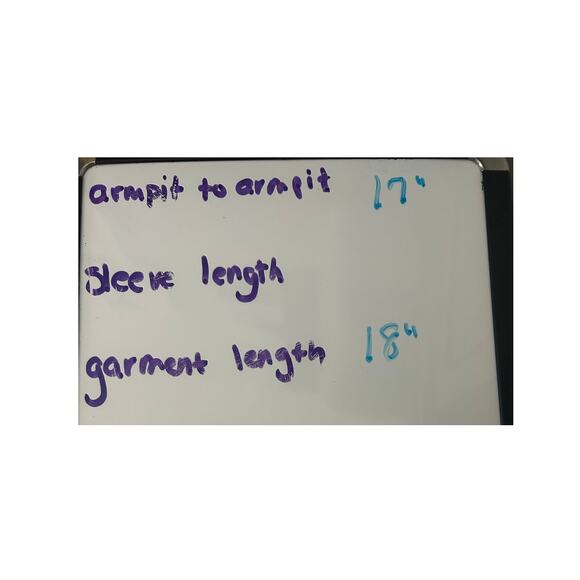 armpit to armpit 17"
sleeve length
garment length 18"